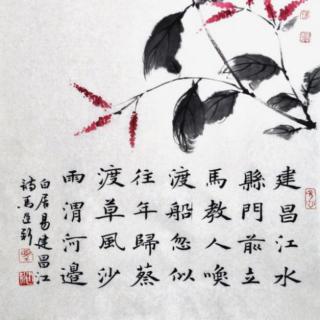 建昌江水
縣門前立
馬教人喚
渡船忽似
往年歸蔡
渡草風沙
雨渭河邊
白居易建昌江
詩馬